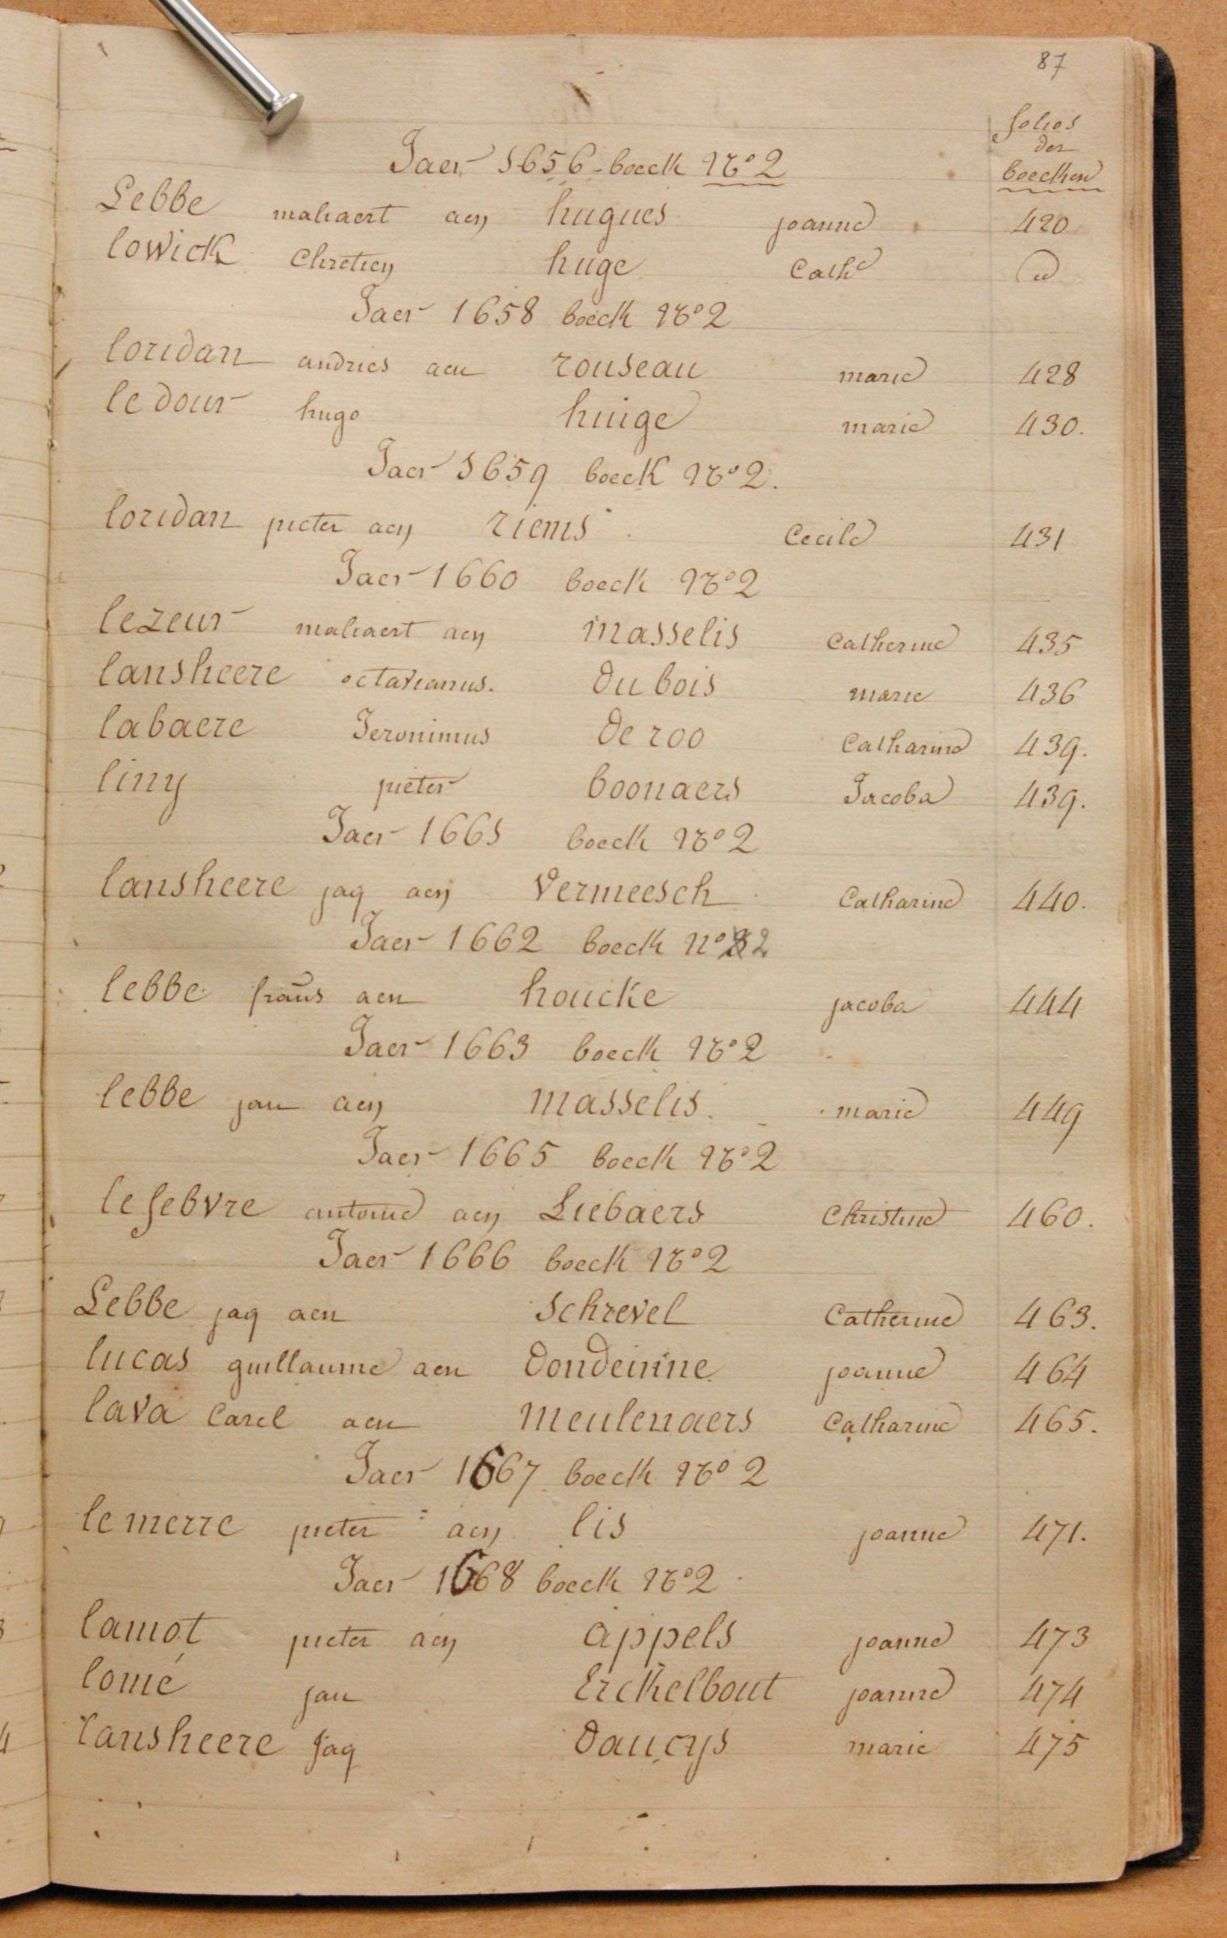 87
folios
der
boecken
Jaer 1656 - boeck No 2
Lebbe maliaert aen hugues joanne 420
lowick Chretien huge Cathe id
Jaer 1658 boeck No 2
loridan andries aen rouseau marie 428
ledour hugo huige marie 430.
Jaer 1659 boeck No 2.
loridan pieter aen riems Cecile 431
Jaer 1660 boeck No 2
lezeur maliaert aen masselis Catherine 435
lansheere octavianus. Du bois marie 436
labaere Jeronimus De roo Catharine 439.
liny pieter boonaers Jacoba 439.
Jaer 1661 boeck No 2
lansheere jaq aen Vermeesch Catharine 440.
Jaer 1662 boeck No 2
lebbe frans aen houcke jacoba 444
Jaer 1663 boeck No 2
lebbe jan aen masselis. marie 449
Jaer 1665 boeck No 2
lefebvre antoine aen Liebaers Christine 460.
Jaer 1666 boeck No 2
Lebbe jaq aen Schrevel Catherine 463.
lucas guillaume aen Dondeinne joanne 464
lava Carel aen meulenaers Catharine 465.
Jaer 1667 boeck No 2
lemerre pieter aen lis joanne 471.
Jaer 1668 boeck No 2
lamot pieter aen appels joanne 473
lomé jan Erckelbout joanne 474
lansheere Jaq Daucys marie 475